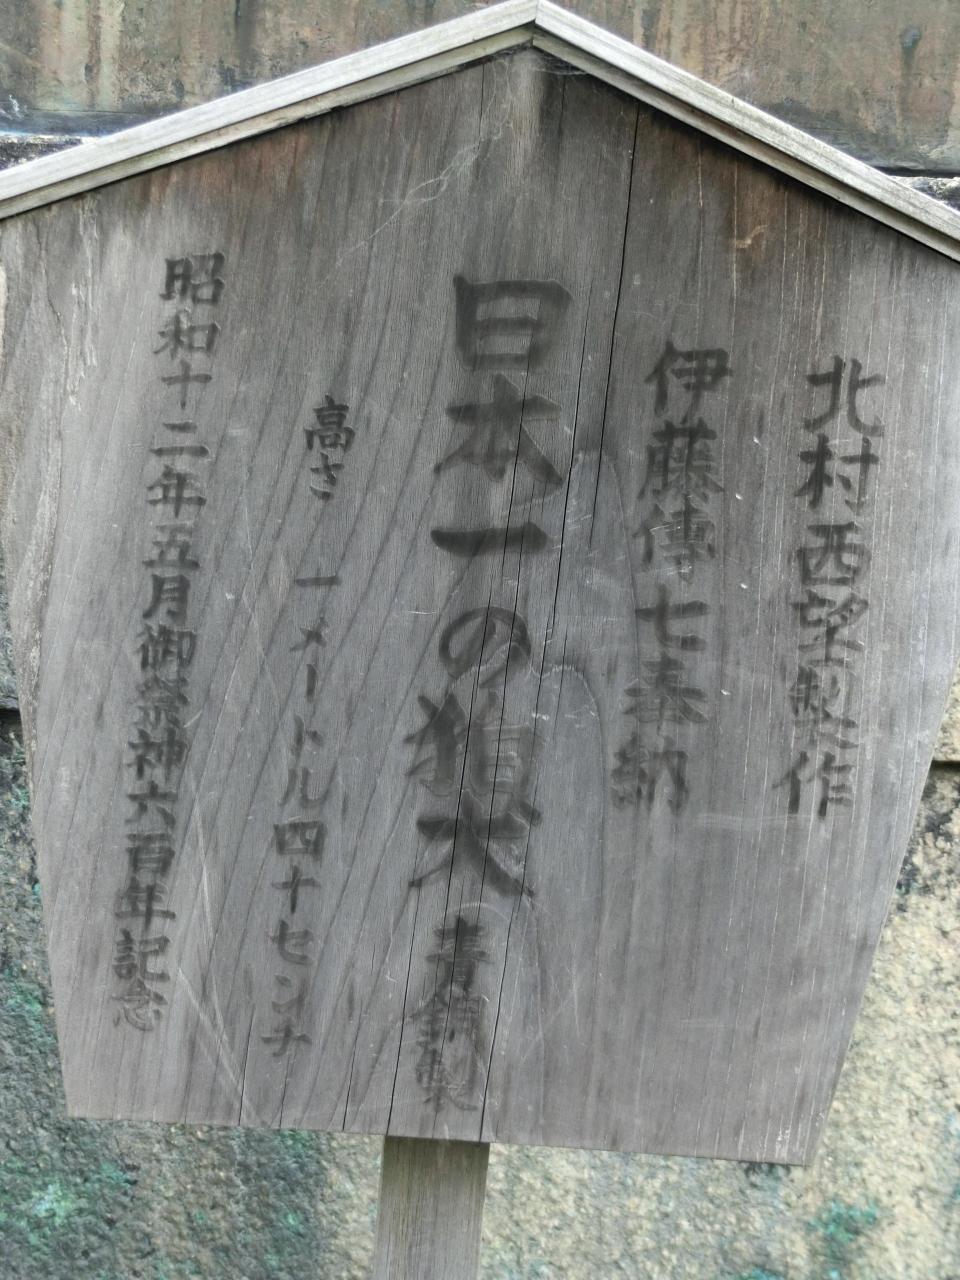 北村西望製作
伊藤傳七奉納
日本一の狛犬 青銅製
高さ 一メートル四十センチ
昭和十二年五月御祭神六百年記念